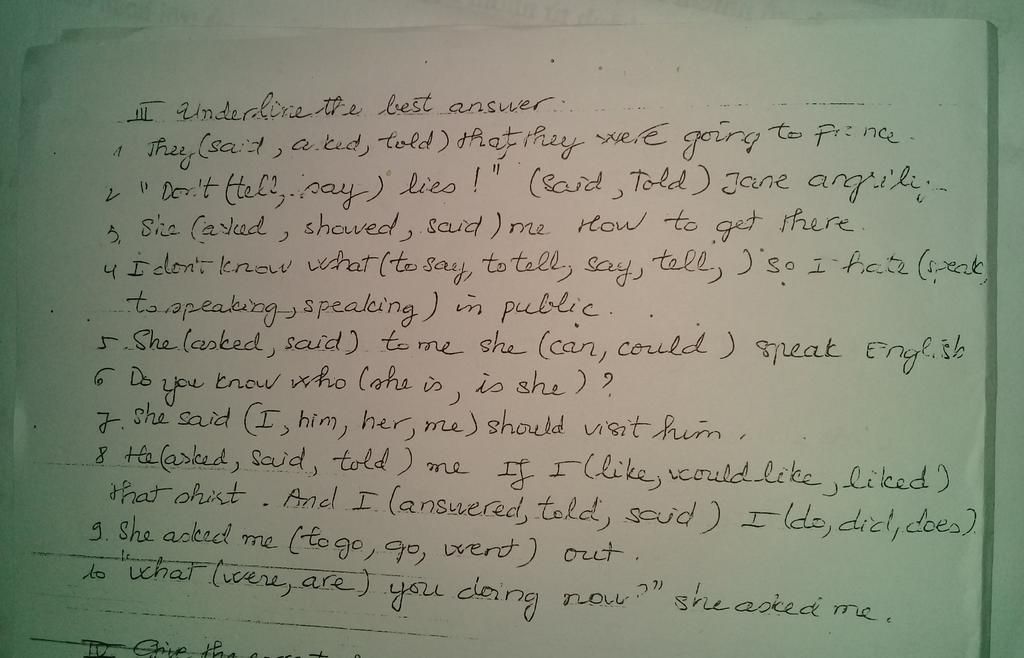 III Underline the best answer:
1 They (said, asked, told) that they were going to France.
2 "Don't (tell, say) lies!" (said, Told) Jane angrili.
3, She (asked, showed, said) me How to get there.
4 I don't know what (to say, to tell, say, tell, ) so I hate (speak,
to speaking, speaking) in public.
5. She (asked, said) to me she (can, could) speak English
6 Do you know who (she is, is she)?
7. She said (I, him, her, me) should visit him.
8 He (asked, said, told) me If I (like, would like, liked)
that shirt. And I (answered, told, said) I (do, did, does).
9. She asked me (to go, go, went) out.
10 "what (were, are) you doing now?" she asked me.
IV Give the correct